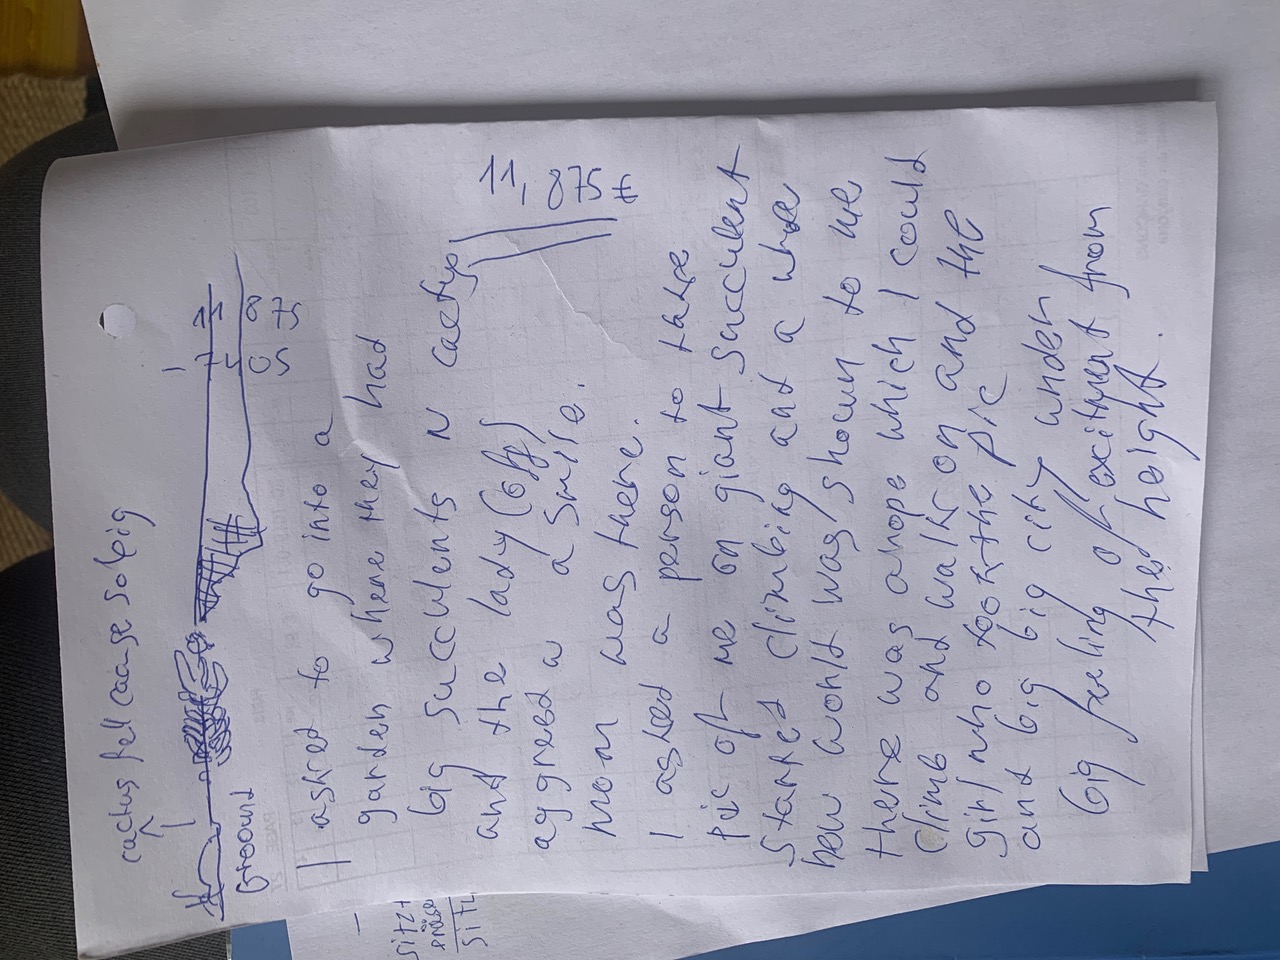 cactus fell cause so big
Groound
11
875
1
05
I asked to go into a
garden where they had
big succulents N cactys
11, 875 t
and the lady (off)
aggred a a smile.
mom was there.
I asked a person to take
pic of me on giant succulent
started climbing and a whoe
new world was shown to me
there was a rope which I could
climb and walk on and the
girl who took the pic
and big big city under
big feeling of excitment from
thes height.
sitzt
sitz